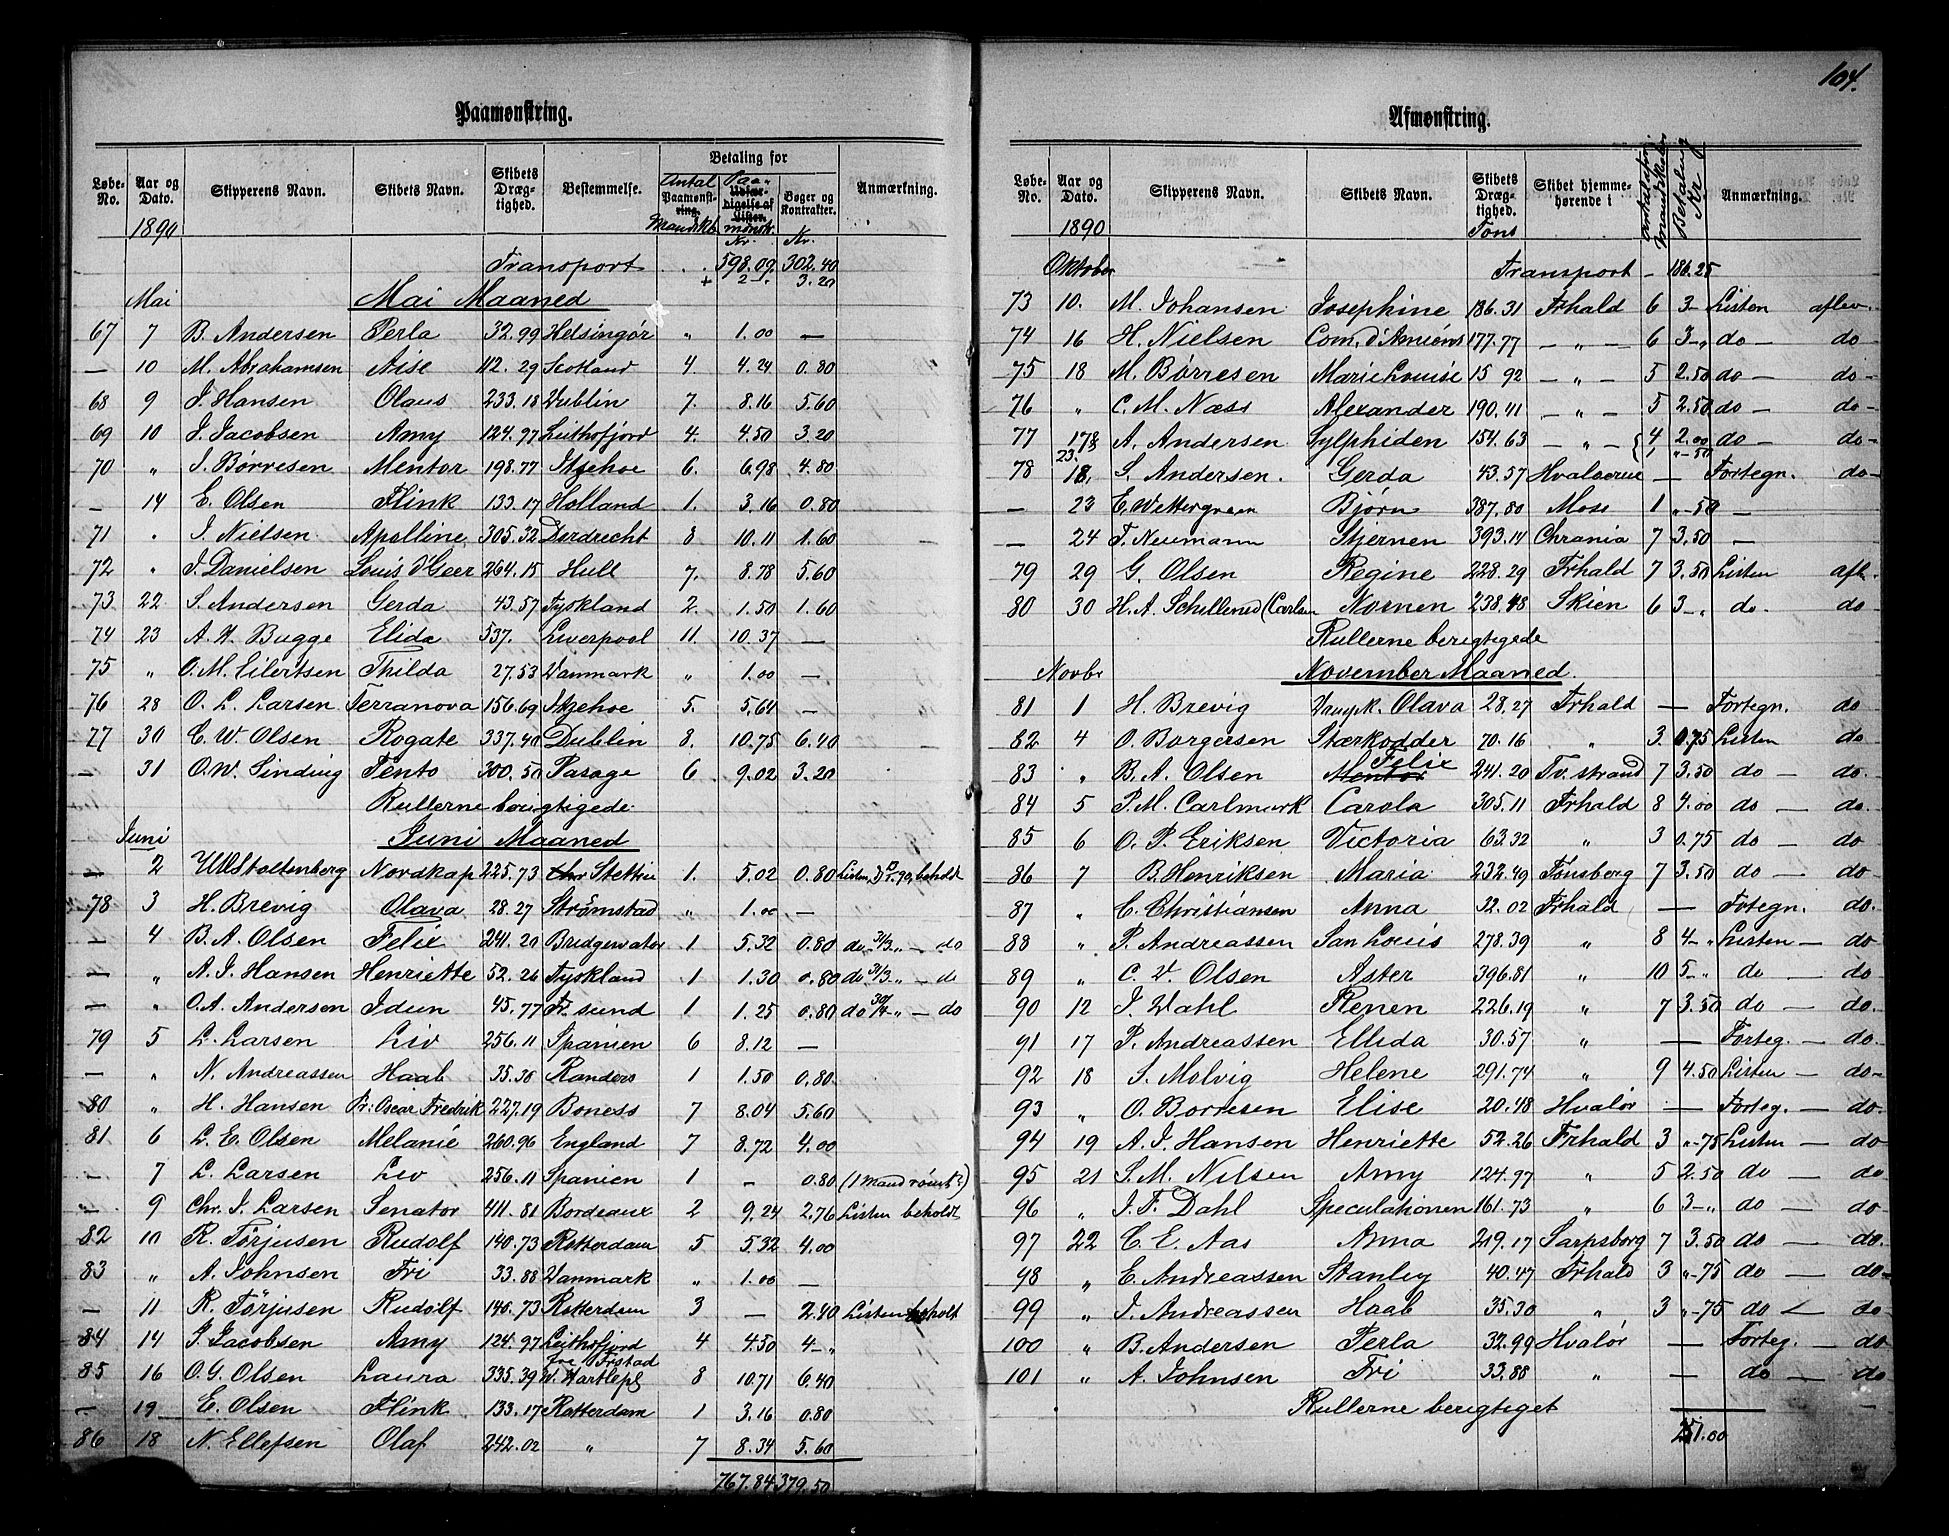 104.
Paamønstring.
Løbe-No. Aar og Dato. 1890 Skipperens Navn. Skibets Navn. Skibets Dræg-tighed. Bestemmelse. Betaling for Antal Paamønst-ring. Mandskb Paa- Udfær-digelse af Lister. mønstr. Kr. Bøger og Kontrakter. Kr. Anmærkning.
Transport 598.09 302.40
+ 2 - 3.20
Mai Mai Maaned
67 7 B. Andersen Perla 32.99 Helsingør " 1.00 —
— 10 M. Abrahamsen Aise 112.29 Scotland 4 4.24 0.80
68 9 J. Hansen Olaus 233.18 Dublin 7. 8.16 5.60
69 10 J. Jacobsen Amy 124.97 Leithofjord 4. 4.50 3.20
70 " J. Børresen Mentor 198.77 Itzehoe 6. 6.98 4.80
— 14 E. Olsen Flink 133.17 Holland 1. 3.16 0.80
71 " J. Nielsen Apolline 305.32 Derdrecht 8 10.11 1.60
72 " J. Danielsen Louis d'Geer 264.15 Hull 7. 8.78 5.60
73 22 S. Andersen Gerda 43.57 Tyskland 2. 1.50 1.60
74 23 A. H. Bugge Elida 537. Liverpool 11. 10.37 —
75 " O. M. Eilertsen Thilda 27.53 Danmark " 1.00 —
76 28 O. L. Larsen Terranova 156.69 Itzehoe 5. 5.64 —
77 30 C. W. Olsen Rogate 337.40 Dublin 8. 10.75 6.40
— 31 O. W. Sinding Tento 300.50 Pasage 6 9.02 3.20
Rullerne berigtigede
Juni Juni Maaned
2 Stoltenberg Nordkap 225.73 Stettin 1. 5.02 0.80 Listen, beholdt
78 3 H. Brevig Olava 28.27 Strømstad " 1.00 —
— 4 B. A. Olsen Felix 241.20 Bridgewater 1 5.32 0.80 do 31/3 " — do
— " A. J. Hansen Henriette 52.26 Tyskland 1 1.30 0.80 do 31/3 " — do
— " O. A. Andersen Idun 45.77 Fr. sund 1 1.25 0.80 do 30/4 " — do
79 5 L. Larsen Liv 256.11 Spanien 6 8.12 —
— " N. Andreassen Haab 35.30 Randers 1 1.50 0.80
80 " H. Hansen Pr: Oscar Fredrik 227.19 Boness 7 8.04 5.60
81 6 L. E. Olsen Melanie 260.96 England 7 8.72 4.00
— 7 L. Larsen Liv 256.11 Spanien 1 — 0.80 (1 mand rømt)
— 9 Chr. J. Larsen Senator 411.81 Bordeaux 2 9.24 2.76 Listen beholdt
82 10 R. Tørjusen Rudolf 140.73 Rotterdam 5 5.32 4.00
83 " A. Johnsen Fri 33.88 Danmark " 1.00 —
— 11 R. Tørjusen Rudolf 140.73 Rotterdam 3 — 2.40 Listen beholt
84 14 J. Jacobsen Amy 124.97 Leithofjord 4 4.50 4 - "
85 16 O. G. Olsen Laura 335.39 fra Frstad W. Hartlepl 8 10.71 6.40
— 19 E. Olsen Flink 133.17 Rotterdam 1 3.16 0.80
86 18 N. Ellefsen Olaf 242.02 " 7 8.34 5.60
767.84 379.50
Afmønstring.
Løbe-No. Aar og Dato. 1890 Skipperens Navn. Skibets Navn. Skibets Dræg-tighed. Tons Skibet hjemme-hørende i Mandskaber Betaling Kr Anmærkning.
Oktober Transport — 186.25
73 10. M. Johansen Josephine 186.31 Frhald 6 3 — Listen aflev.
74 16 H. Nielsen Com. d'Amions 177.77 — " — 6 3 - " do — do
75 18 M. Børresen Marie Louise 15 92 — " — 5 2.50 do — do
76 " C. M. Næss Alexander 190.41 — " — 5 2.50 do — do
77 17/23. A. Andersen Sylphiden 154.63 — " — { 4 1 2.00 " - 50 do — do
78 18, S. Andersen. Gerda 43.57 Hvaløerne — Fortegn. do
— 23 E. Wettergreen Bjørn 387.80 Moss 1 " - 50 —
— 24 T. Neumann Stjernen 393.14 Chrania 7 3.50 —
79 29 G. Olsen Regine 228.29 Frhald 7 3.50 Listen afl.
80 30 H. A. Schillened (Carlsen Nornen 238.48 Skien 6 3 - " do. do
Rullerne berigtigede
Novbr November Maaned.
81 1 H. Brevig Olava 28.27 Frhald — Fortegn. do
82 4 O. Borgersen Stærkodder 70.16 " 3 0.75 Listen do
83 " B. A. Olsen Mentor Felix 241.20 Tv. strand 7 3.50 do — do
84 5 P. M. Carlmark Carola 305.11 Frhald 8 4.00 do — do
85 6 O. P. Eriksen Victoria 63.32 " 3 0.75 do — do
86 7 B. Henriksen Maria 232.49 Tønsberg 7 3.50 do — do
87 " C. Christiansen Anna 32.02 Frhald — Frtegn. do
88 " P. Andreassen San Louis 278.39 " 8 4 - " Listen — do
89 " C. V. Olsen Aster 396.81 " 10 5 - " do — do
90 12 J. Dahl Renen 226.19 " 7 3.50 do — do
91 17 P. Andreassen Ellida 30.57 " — Forteg. — do
92 18 S. Molvig Helene 291.74 " 9 4.50 Listen — do
93 " O. Borresen Elise 20.48 Hvalør — Forteg. — do
94 19 A. J. Hansen Henriette 52.26 Frhald 3 " - 75 Listen — do
95 21 S. M. Nilsen Amy 124.97 " 5 2.50 do — do
96 " J. F. Dahl Speculationen 161.73 " 6 3 - " do — do
97 22 C. E. Aas Anna 219.17 Sarpsborg 7 3.50 do — do
98 " E. Andreassen Stanley 40.47 Frhald 3 " - 75 do — do
99 " J. Andreassen Haab 35.30 " 3 " - 75 do — do
100 " B. Andersen Perla 32.99 Hvalør — Forteg. do
101 " A. Johnsen Fri 33.88 " — do — do
Rullerne berigtiget
251.00